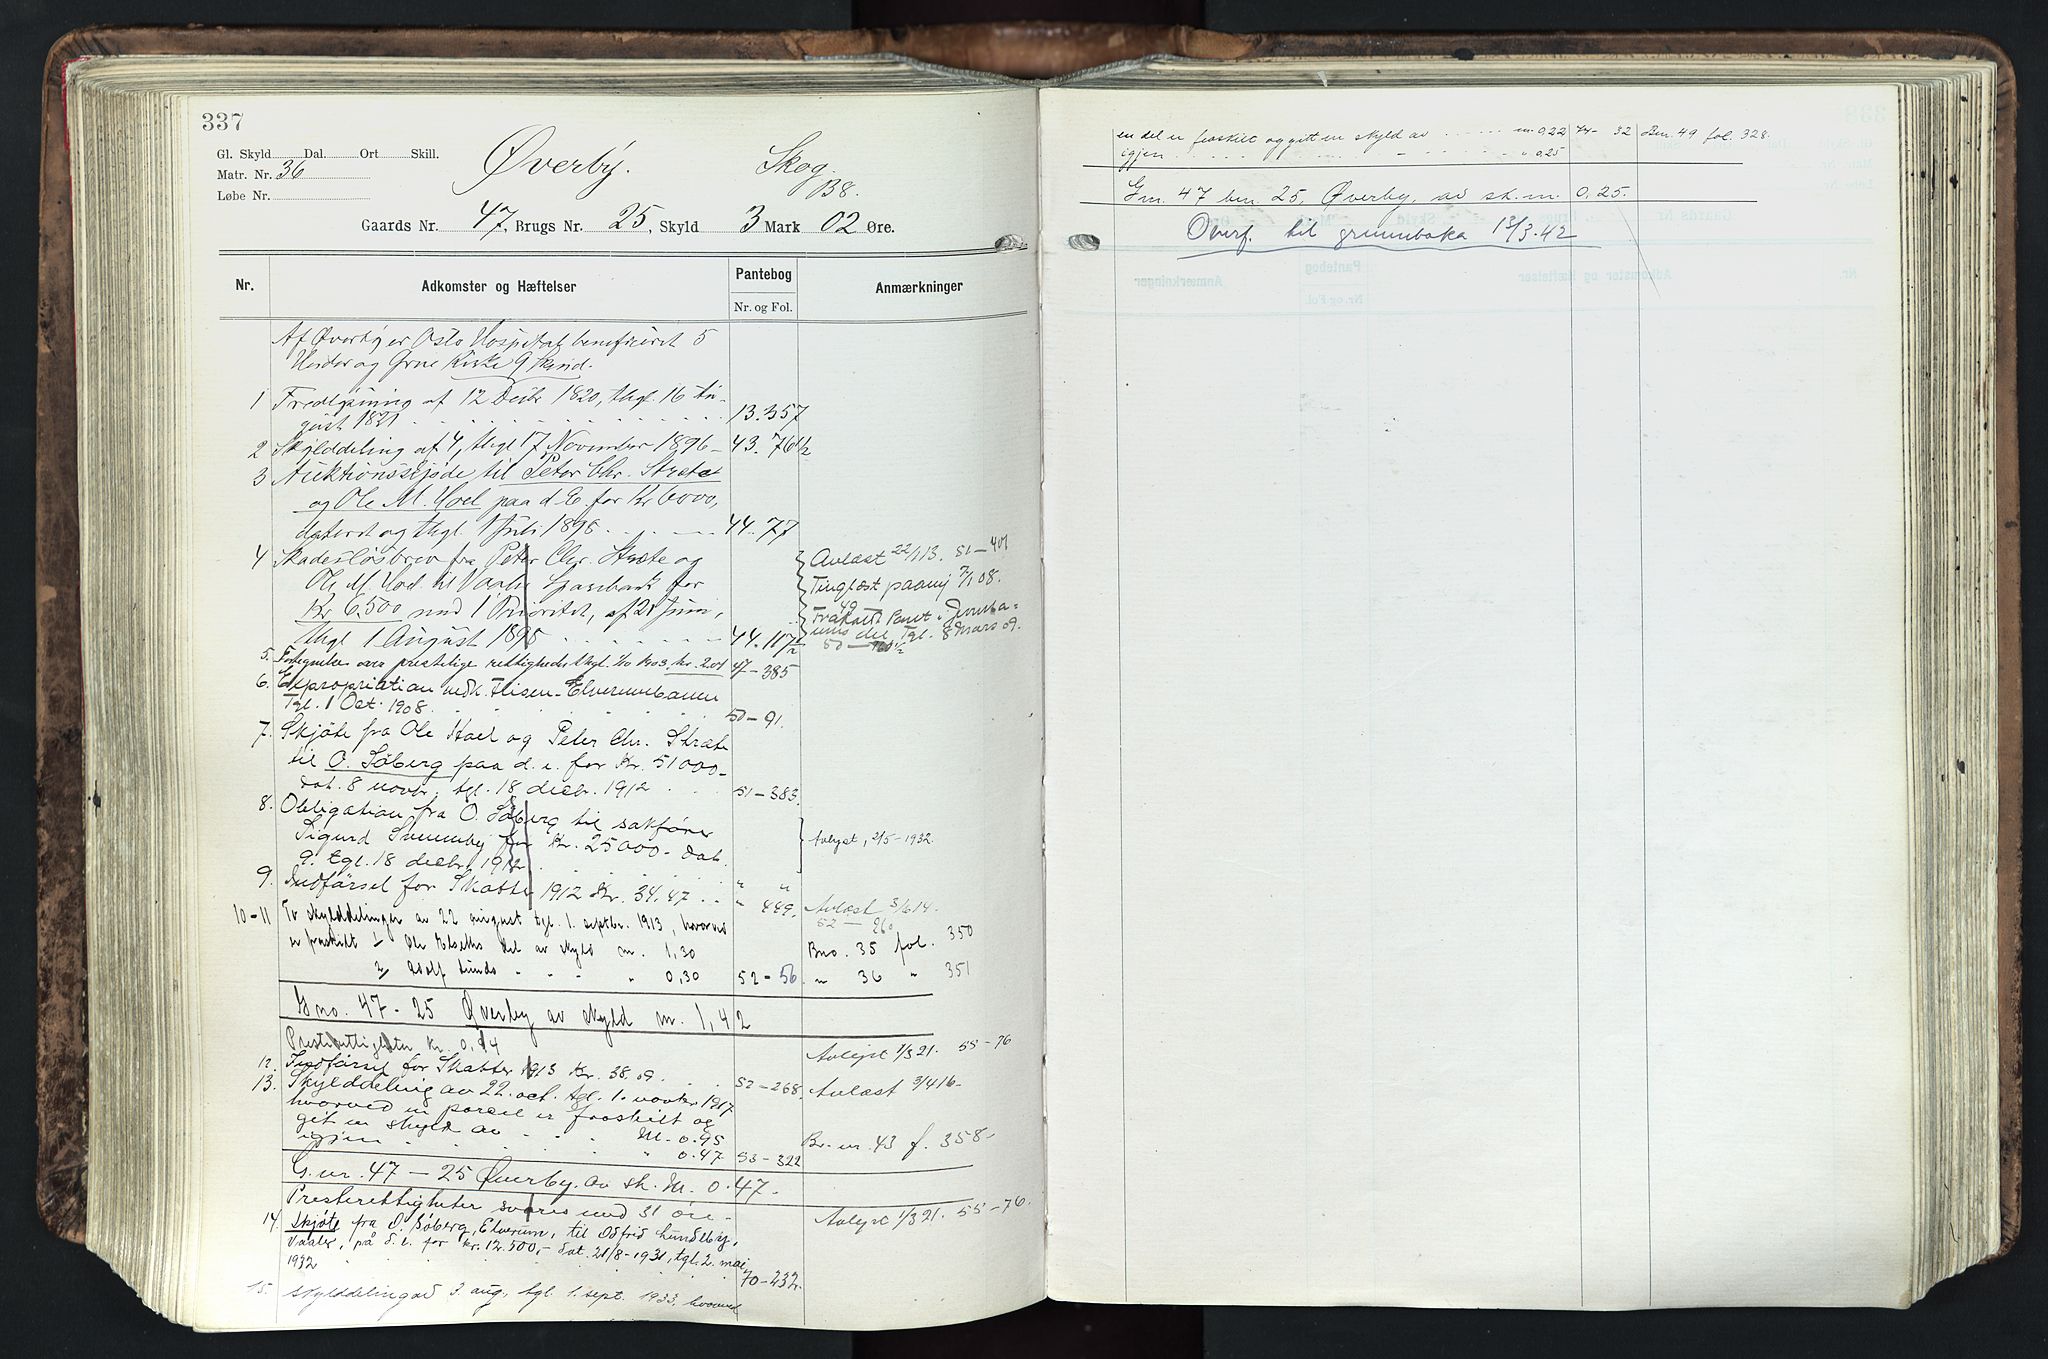 337
Gl. Skyld Dal. Ort Skill.
Matr. Nr. 36
Løbe Nr.
Øverby. Skog.
B8.
Gaards Nr. 47, Brugs Nr. 25, Skyld 3 Mark 02 Øre.
Nr. Adkomster og Hæftelser Pantebog Anmærkninger
Nr. og Fol.
Af Øverby er Oslo Hospital beneficeret 5
Huder og Grue Kirke 9 Skind.
1 Fredlysning af 12 Decbr 1820, thgl. 16 Au-
gust 1821 13.357
2 Skylddeling af 4, thgl 17 November 1896 - 43.76 1/2
3 Auktionsskjøde til Peter Chr. Stræte
og Ole M. Hoel paa d. E. for Kr 6000,
dateret og thgl. 1 Juli 1898 44.77
4 Skadesløsbrev fra Peter Chr. Stræte og Avlæst 22/1 13. 51-401
Ole M. Hoel til Vaaler Sparebank for Tinglæst paany 7/1 08.
Kr 6.500 med 1 Prioritet, af 21 Juni, 49
Frafaldt Pant i Jernba-
thgl 1 August 1898 44.117 1/2 nens del Tgl. 8 Mars 09.
50-
5. Fortegnelse over prestelige rettigheder thgl. 1903, kr. 2.01 47-385
6. Expropriation vedk. Flisen-Elverumbanen
Tgl. 1 Oct. 1908. 50-91.
7. Skjøte fra Ole Hoel og Peter Chr. Stræte
til O. Søberg paa d. e. for Kr. 51000-
dat. 8 novbr. tgl. 18 decbr. 1912 51-383.
8. Obligation fra O. Søberg til sakfører
Sigurd Svenneby for Kr. 25000- dat. Avlyst, 2/5-1932.
9. tgl. 18 decbr. 1912 " "
9. Indførsel for Skatter 1912 Kr. 34.47 " 449. Avlæst 3/6 14.
52-260
10-11 To skylddelinger av 22 august tgl. 1. septbr. 1913, hvorved
er fraskilt 1/ Ole Elseths del av skyld m. 1,30 Bno. 35 fol. 350
2/ Adolf Lunds " " - " 0,30 52-56 " 36 " 351
Gno. 47-25 Øverby av skyld m. 1,42
Presterettigheter kr. 0,94 Avlyst 1/3 21. 55-76
12. Indførsel for Skatter 1913 Kr. 38.09. 52-268. Avlæst 3/4 16-
13. Skylddeling av 22. oct. tgl. 1. novbr 1917
hvorved en parcel er fraskilt og
git en skyld av M. 0.95 Br. nr. 43 f. 358-
igjen " 0.47 53-322
G. nr. 47-25 Øverby, av sk. M. 0.47.
Presterettigheter svares med 31 øre- Avlyst 1/3 21. 55-76.
14. Skjøte fra O. Søberg, Elverum, til Odfrid Lundeby,
Vaaler, på d. e. for kr. 12.500,- dat. 21/8-1931, tgl. 2. mai
1932 70-232.
15. Skylddeling av 3. aug. tgl. 1. sept. 1933, hvorved
en del er fraskilt og gitt en skyld av m. 0,22 74-32 Bnr. 49 fol. 328.
igjen " 0,25
Gnr. 47 bnr. 25, Øverby, av sk. m. 0,25.
Overf. til grunnboka 13/3-42